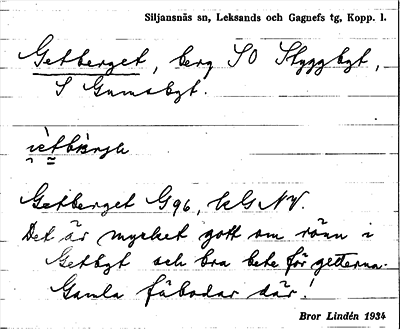 Siljansnäs sn, Leksands och Gagnefs tg, Kopp. l.
Getberget, berg SO Styggbgt,
S Gumsbgt.
Getberget G96, kG NV.
Det är mycket gott om rönn i
Getbgt och bra bete för getterna.
Gamla fäbodar där!
Bror Lindén 1934